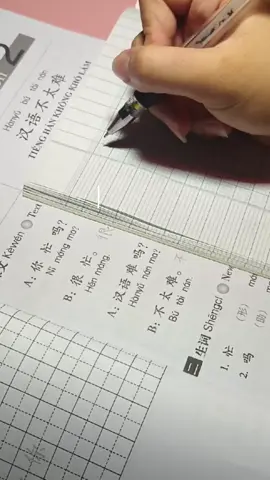 2
Hànyǔ bú tài nán
汉语不太难
TIẾNG HÁN KHÔNG KHÓ LẮM
文 Kèwén
A: 你忙吗?
Nǐ máng ma?
B: 很忙。
Hěn máng.
A: 汉语难吗?
Hànyǔ nán ma?
B: 不太难。
Bú tài nán.
三 生词 Shēngcí
1. 忙 (形)
2. 吗 (助)